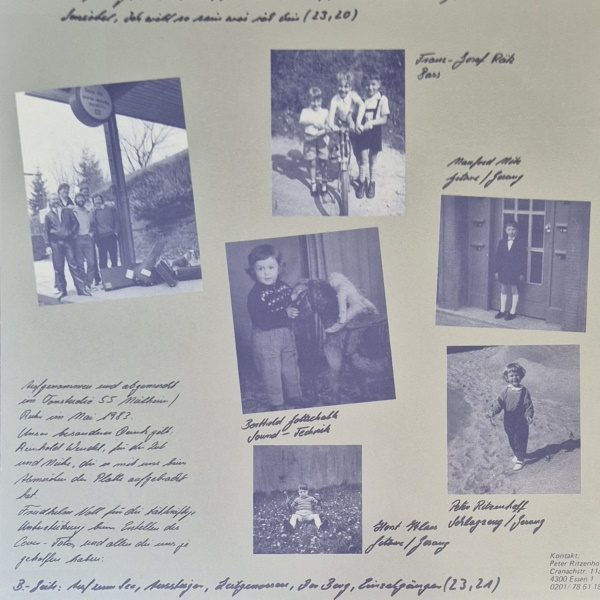 Ich will so sein wie ich bin (23,20)
Franz-Josef
Bass
Manfred
Gitarre / Gesang
Aufgenommen und abgemischt
im Tonstudio 55 Mülheim /
Ruhr im Mai 1983.
Unser besonderer Dank gilt
Reinhold, für die Zeit
und Mühe, die er mit uns beim
Abmischen der Platte aufgebracht
hat.
Noll für die tatkräftige
Unterstützung beim Erstellen der
Cover-Fotos und allen die uns je
geholfen haben.
Berthold Gottschalk
Sound-Technik
Horst
Gitarre / Gesang
Peter Ritzenhoff
Schlagzeug / Gesang
Kontakt:
Peter Ritzenho
Cranachstr. 11
4300 Essen 1
0201/78 61 18
B.-Seite: Auf'm See, Aussteiger, Zeitgenossen, Der Berg, Einzelgänger (23,21)